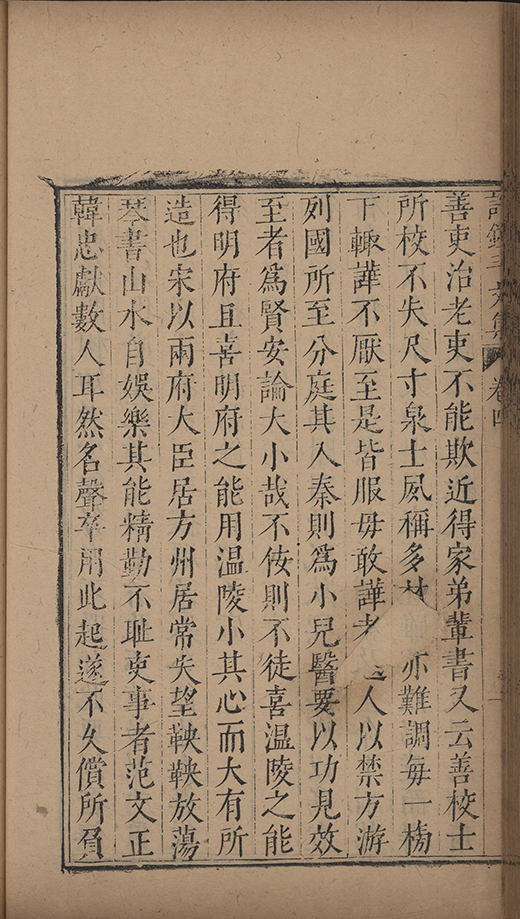 卷四
善吏治老吏不能欺近得家弟輩書又云善校士
所校不失尺寸泉士夙稱多亦難調每一榜
下輙譁不厭至是皆服毋敢譁者人以禁方游
列國所至分庭其入秦則爲小兒醫要以功見效
至者爲賢安論大小哉不佞則不徒喜溫陵之能
得明府且喜明府之能用溫陵小其心而大有所
造也宋以兩府大臣居方州居常失望鞅鞅放蕩
琴書山水自娛樂其能精勤不耻吏事者范文正
韓忠獻數人耳然名聲卒用此起遂不久償所負